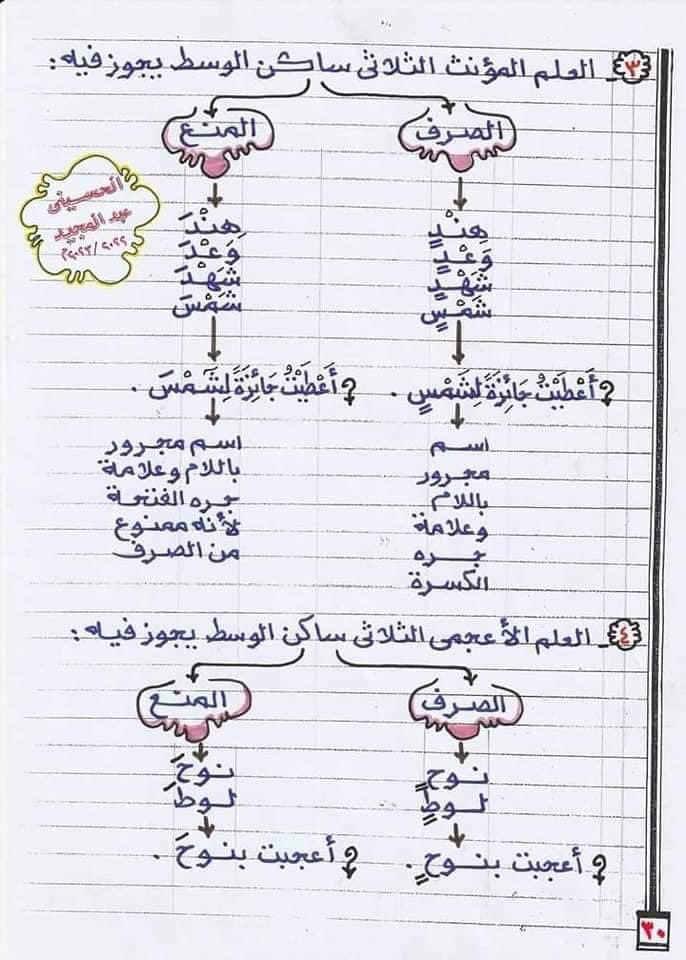 ٣ـ العلم المؤنث الثلاثى ساكن الوسط يجوز فيه :
الصرف
هِنْدٍ
وَعْدٍ
شَهْدٍ
شَمْسٍ
؟ أَعْطَيْتُ جَائِزَةً لِشَمْسٍ .
اسم
مجرور
باللام
وعلامة
جره
الكسرة
المنع
هِنْدَ
وَعْدَ
شَهْدَ
شَمْسَ
؟ أَعْطَيْتُ جَائِزَةً لِشَمْسَ .
اسم مجرور
باللام وعلامة
جره الفتحة
لأنه ممنوع
من الصرف
الحسينى
عبد المجيد
٢٠٢٢/٢٠٢٣م
٤ـ العلم الأعجمى الثلاثى ساكن الوسط يجوز فيه :
الصرف
نوحٍ
لوطٍ
؟ أعجبت بنوحٍ .
المنع
نوحَ
لوطَ
؟ أعجبت بنوحَ .
٣٠